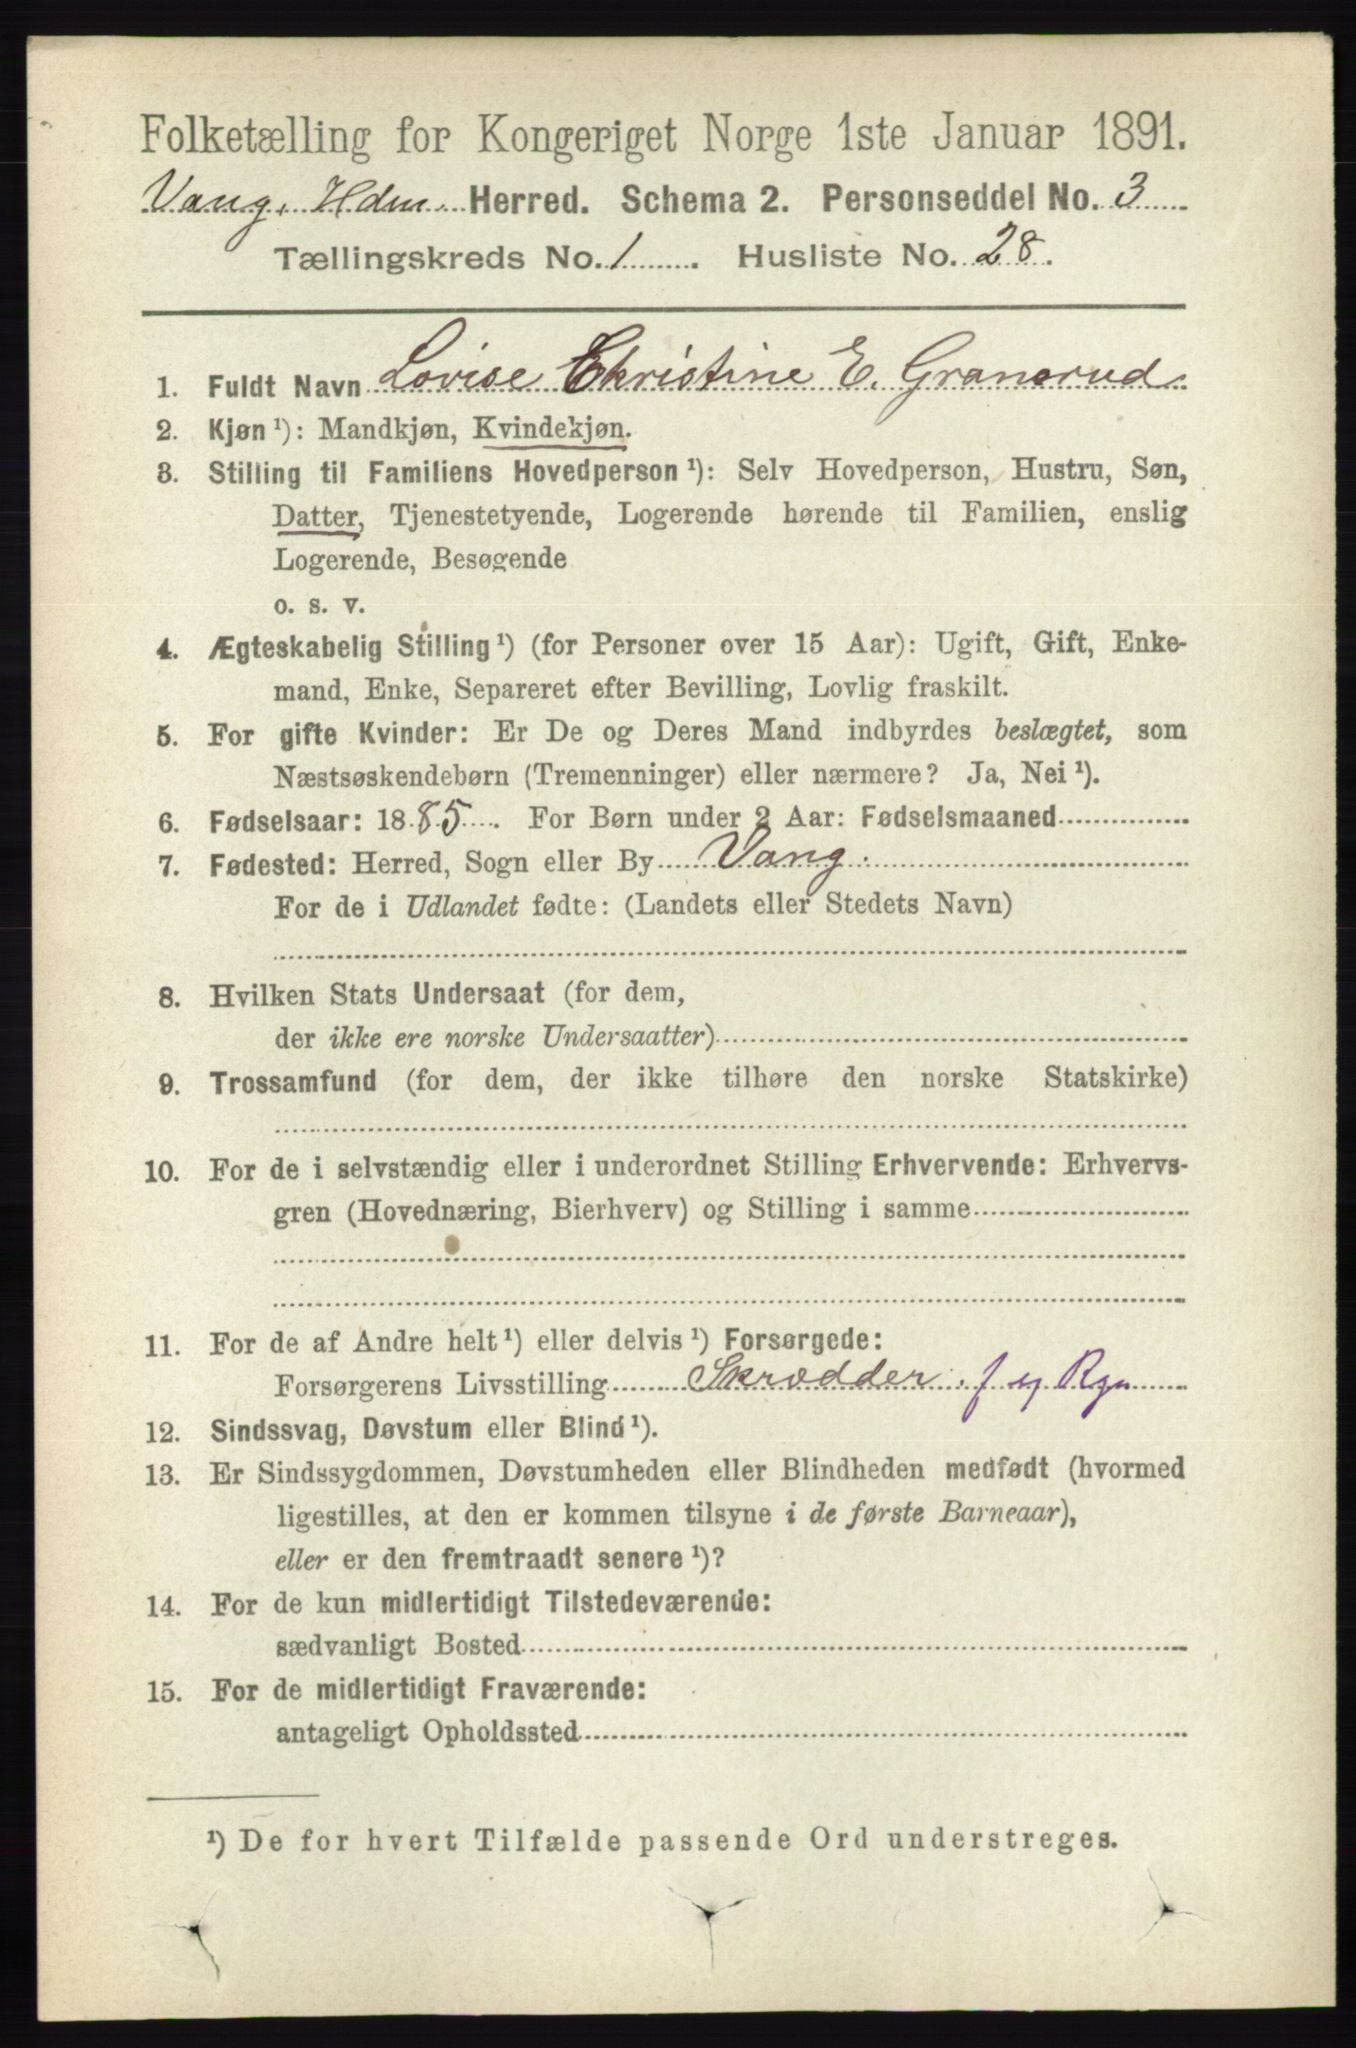 Folketælling for Kongeriget Norge 1ste Januar 1891.
Vang, Hdm. Herred. Schema 2. Personseddel No. 3
Tællingskreds No. 1. Husliste No. 28.
1. Fuldt Navn Lovise Christine E. Granerud
2. Kjøn ¹): Mandkjøn, Kvindekjøn.
3. Stilling til Familiens Hovedperson ¹): Selv Hovedperson, Hustru, Søn,
Datter, Tjenestetyende, Logerende hørende til Familien, enslig
Logerende, Besøgende
o. s. v.
4. Ægteskabelig Stilling ¹) (for Personer over 15 Aar): Ugift, Gift, Enke-
mand, Enke, Separeret efter Bevilling, Lovlig fraskilt.
5. For gifte Kvinder: Er De og Deres Mand indbyrdes beslægtet, som
Næstsøskendebørn (Tremenninger) eller nærmere? Ja, Nei ¹).
6. Fødselsaar: 1885. For Børn under 2 Aar: Fødselsmaaned
7. Fødested: Herred, Sogn eller By Vang.
For de i Udlandet fødte: (Landets eller Stedets Navn)
8. Hvilken Stats Undersaat (for dem,
der ikke ere norske Undersaatter)
9. Trossamfund (for dem, der ikke tilhøre den norske Statskirke)
10. For de i selvstændig eller i underordnet Stilling Erhvervende: Erhvervs-
gren (Hovednæring, Bierhverv) og Stilling i samme
11. For de af Andre helt ¹) eller delvis ¹) Forsørgede:
Forsørgerens Livsstilling Skrædder. f eg Rgn
12. Sindssvag, Døvstum eller Blind ¹).
13. Er Sindssygdommen, Døvstumheden eller Blindheden medfødt (hvormed
ligestilles, at den er kommen tilsyne i de første Barneaar),
eller er den fremtraadt senere ¹)?
14. For de kun midlertidigt Tilstedeværende:
sædvanligt Bosted
15. For de midlertidigt Fraværende:
antageligt Opholdssted
¹) De for hvert Tilfælde passende Ord understreges.